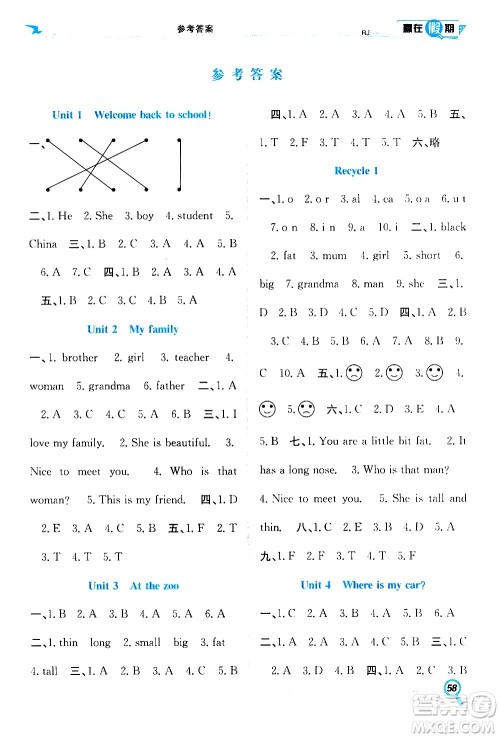 参考答案
RJ
赢在假期
参考答案
Unit 1 Welcome back to school!
一、
二、1. He 2. She 3. boy 4. student 5.
China 三、1. B 2. A 3. C 4. A 5. B
6. A 7. C 四、1. B 2. A 3. B 4. A
五、1. C 2. A 3. B 4. A 5. C
Unit 2 My family
一、1. brother 2. girl 3. teacher 4.
woman 5. grandma 6. father 二、1. A
2. A 3. C 4. B 5. C 6. A 三、1. I
love my family. 2. She is beautiful. 3.
Nice to meet you. 4. Who is that
woman? 5. This is my friend. 四、1. D
2. E 3. A 4. B 5. C 五、1. F 2. T
3. T 4. T 5. F
Unit 3 At the zoo
一、1. B 2. A 3. C 4. A 5. B
二、1. thin long 2. small big 3. fat
4. tall 三、1. B 2. A 3. A 4. A 5. B
四、1. B 2. A 3. A 4. A 5. B 五、
1. C 2. A 3. B 4. A 5. C 六、略
Recycle 1
一、1. o 2. o r 3. al 4. ca 5. o a 6. u t
7. on 8. in 9. a 10. i 二、1. black
2. fat 3. mum 4. girl 5. short 6.
big 7. grandma 8. she 三、1. C 2. B
3. B 4. A 5. C 四、1. C 2. B 3. A
4. A 5. B 6. A 7. B 8. B 9.
C 10. A 五、1. 2. 3.
4. 5. 六、1. B 2. C 3. A 4. D
5. B 七、1. You are a little bit fat. 2. It
has a long nose. 3. Who is that man? 4.
Nice to meet you. 5. She is tall and
thin. 八、1. D 2. A 3. B 4. C 5. E
九、1. F 2. F 3. T 4. T 5. T
Unit 4 Where is my car?
一、1. B 2. A 3. C 4. A 5. B
二、1. C 2. B 3. A 4. B 5. C 三、1. A
2. B 3. A 四、1. C 2. B 3. A 4. C
58